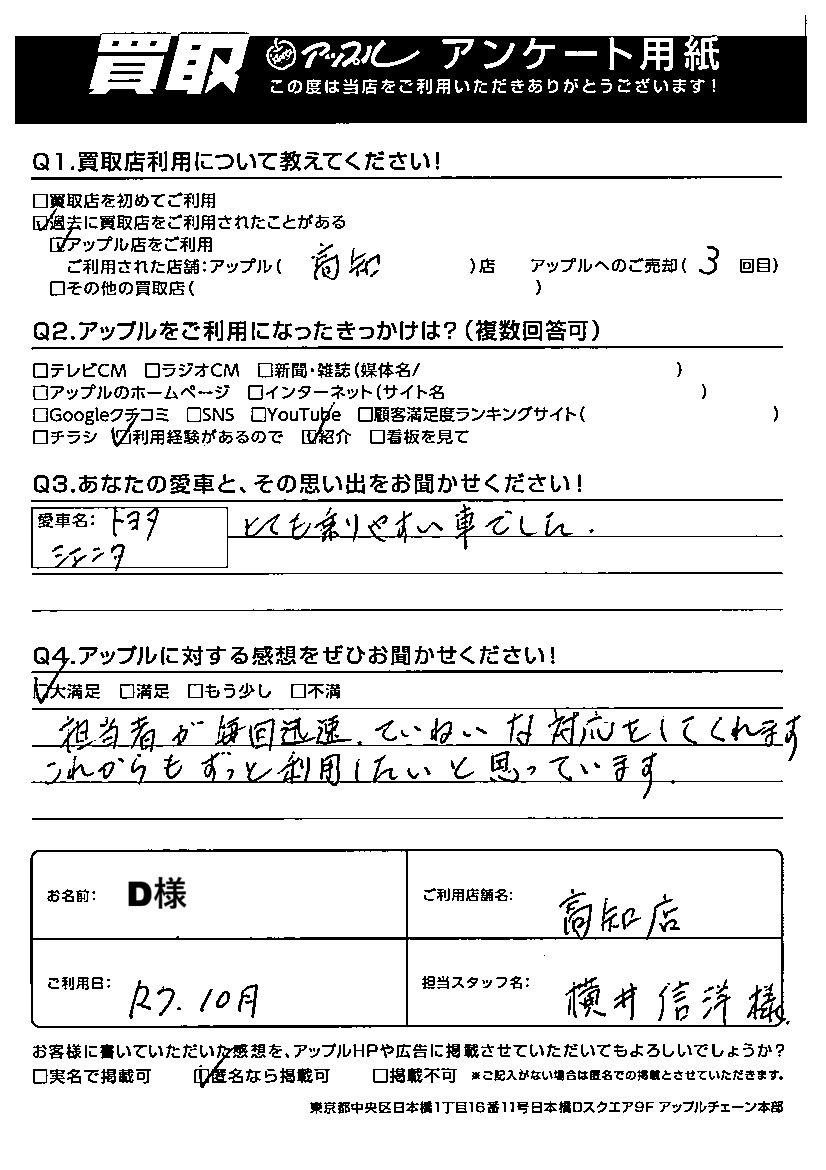 買取 アップル アンケート用紙
この度は当店をご利用いただきありがとうございます!
Q1.買取店利用について教えてください!
□買取店を初めてご利用
☑過去に買取店をご利用されたことがある
☑アップル店をご利用
ご利用された店舗:アップル( 高知 )店 アップルへのご売却( 3 回目)
□その他の買取店( )
Q2.アップルをご利用になったきっかけは?(複数回答可)
□テレビCM □ラジオCM □新聞・雑誌(媒体名/ )
□アップルのホームページ □インターネット(サイト名 )
□Googleクチコミ □SNS □YouTube □顧客満足度ランキングサイト( )
□チラシ ☑利用経験があるので ☑紹介 □看板を見て
Q3.あなたの愛車と、その思い出をお聞かせください!
愛車名: トヨタ
シエンタ
とても乗りやすい車でした.
Q4.アップルに対する感想をぜひお聞かせください!
☑大満足 □満足 □もう少し □不満
担当者が毎回迅速、ていねいな対応をしてくれます
これからもずっと利用したいと思っています.
お名前: D様
ご利用店舗名: 高知店
ご利用日: R7.10月
担当スタッフ名: 横井 信洋 様.
お客様に書いていただいた感想を、アップルHPや広告に掲載させていただいてもよろしいでしょうか?
□実名で掲載可 ☑匿名なら掲載可 □掲載不可 ※ご記入がない場合は匿名での掲載とさせていただきます。
東京都中央区日本橋1丁目16番11号日本橋Dスクエア9F アップルチェーン本部